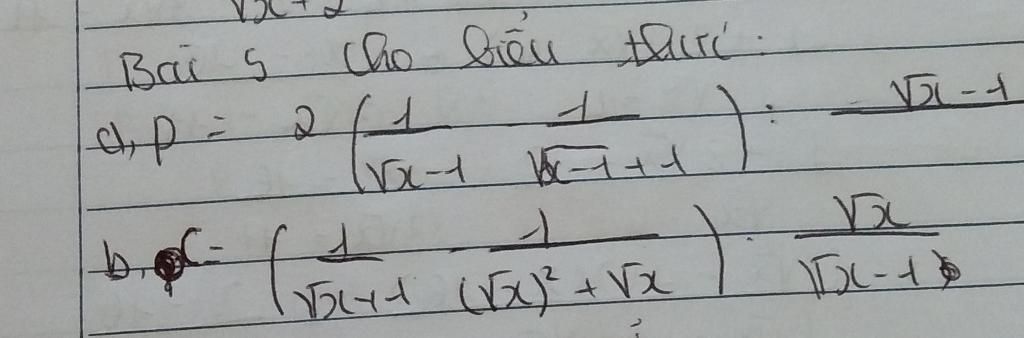 √x + 2
Bài 5 Cho biểu thức:
a, P = 2 (1/(√x-1) 1/(√x-1+1)) : √x-1
b, C = (1/(√x+1) - 1/((√x)² + √x)) . √x/(√x-1)